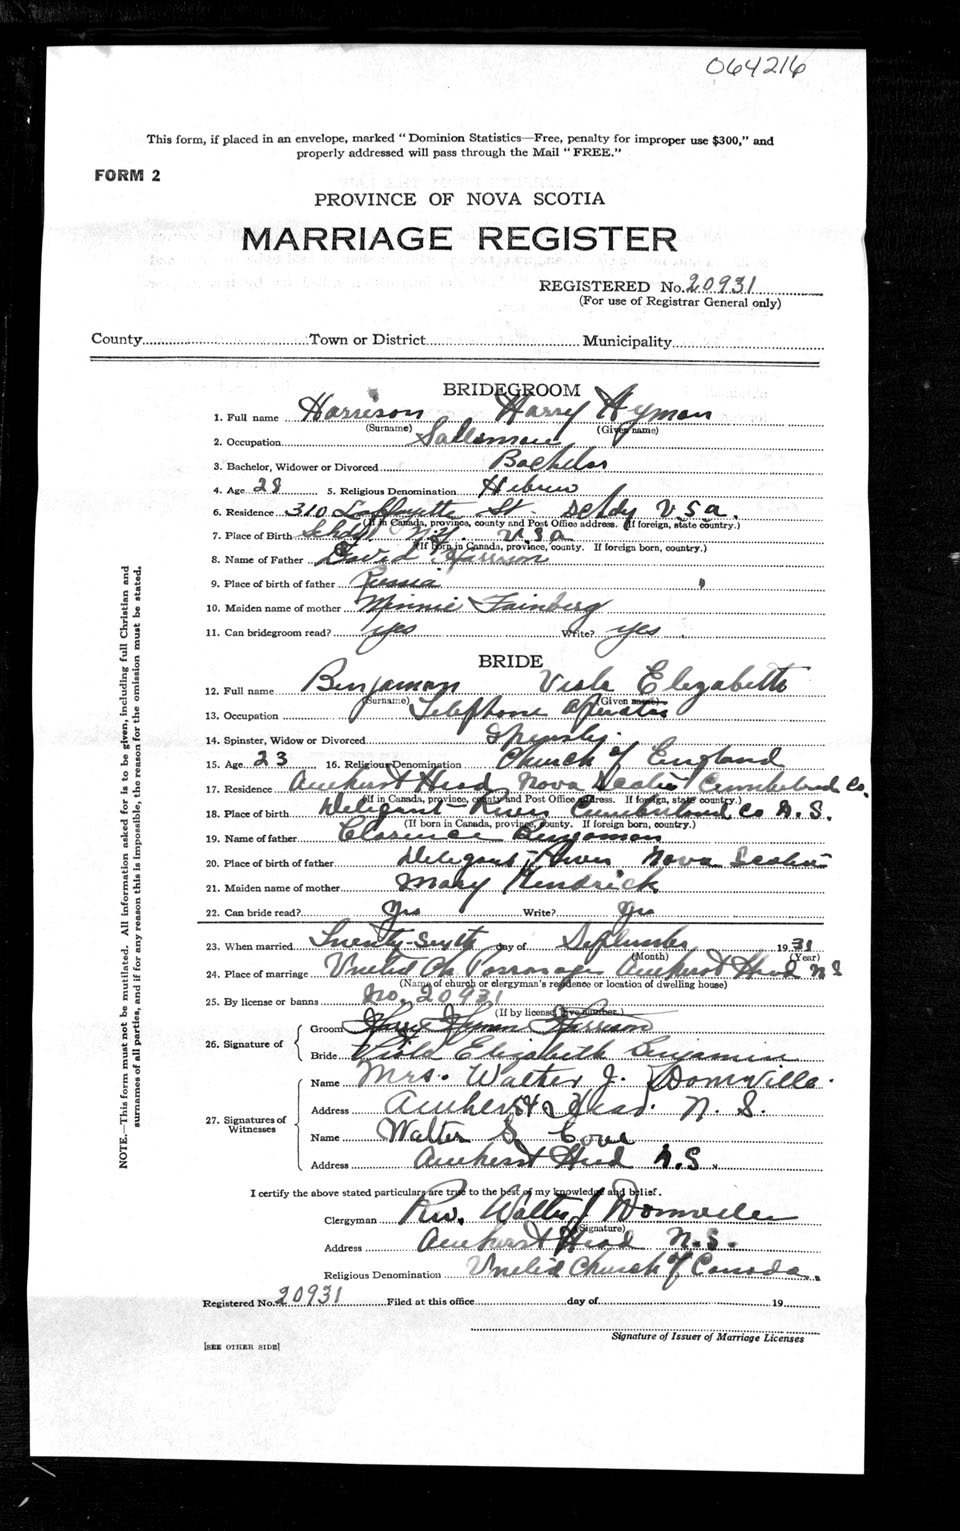 064216
This form, if placed in an envelope, marked "Dominion Statistics—Free, penalty for improper use $300," and
properly addressed will pass through the Mail "FREE."
FORM 2
PROVINCE OF NOVA SCOTIA
MARRIAGE REGISTER
REGISTERED No. 20931
(For use of Registrar General only)
County Town or District Municipality
BRIDEGROOM
1. Full name Harrison Harry Hyman
(Surname) (Given name)
2. Occupation Salesman
3. Bachelor, Widower or Divorced Bachelor
4. Age 28 5. Religious Denomination Hebrew
6. Residence 310 Laffayette St. Schdy U S a.
(If in Canada, province, county and Post Office address. If foreign, state country.)
7. Place of Birth Schdy N.Y. U S a
(If born in Canada, province, county. If foreign born, country.)
8. Name of Father David Harrison
9. Place of birth of father Russia
10. Maiden name of mother Minnie Fainberg
11. Can bridegroom read? yes Write? yes
BRIDE
12. Full name Benjaman Viola Elizabeth
(Surname) (Given name)
13. Occupation Telephone operator
14. Spinster, Widow or Divorced Spinster
15. Age 23 16. Religious Denomination Church of England
17. Residence Amherst Head Nova Scotia Cumberland Co.
(If in Canada, province, county and Post Office address. If foreign, state country.)
18. Place of birth River Cumberland Co N.S.
(If born in Canada, province, county. If foreign born, country.)
19. Name of father Clarence Benjaman
20. Place of birth of father River Nova Scotia
21. Maiden name of mother Mary Kendrick
22. Can bride read? Yes Write? Yes
23. When married Twenty-sixth day of September 1931
(Month) (Year)
24. Place of marriage United Ch. Parsonage Amherst Head N S
(Name of church or clergyman's residence or location of dwelling house)
25. By license or banns No. 20931
(If by license, give number.)
26. Signature of
Groom Harry Hyman Harrison
Bride Viola Elizabeth Benjamin
27. Signatures of
Witnesses
Name Mrs. Walter J. Domville.
Address Amherst Head. N. S.
Name Walter S
Address Amherst Head N.S.
I certify the above stated particulars are true to the best of my knowledge and belief.
Clergyman Rev. Walter J Domville
(Signature)
Address Amherst Head N.S.
Religious Denomination United Church of Canada.
Registered No. 20931 Filed at this office day of 19
Signature of Issuer of Marriage Licenses
[SEE OTHER SIDE]
NOTE.—This form must not be mutilated. All information asked for is to be given, including full Christian and
surnames of all parties, and if for any reason this is impossible, the reason for the omission must be stated.